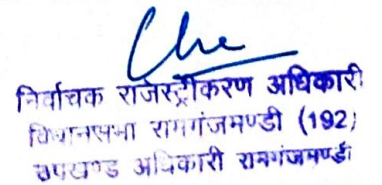 निर्वाचक रजिस्ट्रीकरण अधिकारी
विधानसभा रामगंजमण्डी (192)
उपखण्ड अधिकारी रामगंजमण्डी